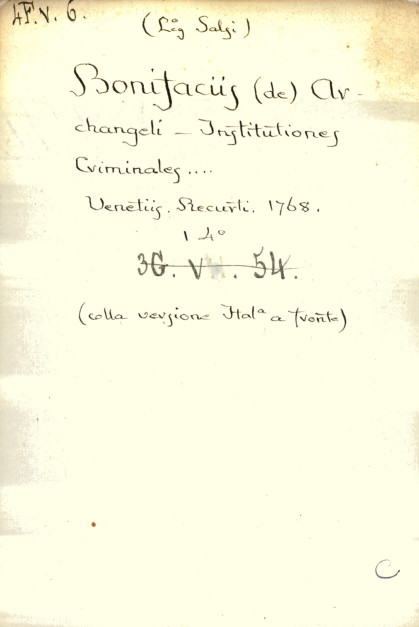 4F. V. 6.
(Leg Salsi)
Bonifaciis (de) Ar-
changeli - Institutiones
Criminales....
Venetiis. Recurti. 1768.
1 4º
3G. V . 54.
(colla versione Ital.ª a fronte)
C